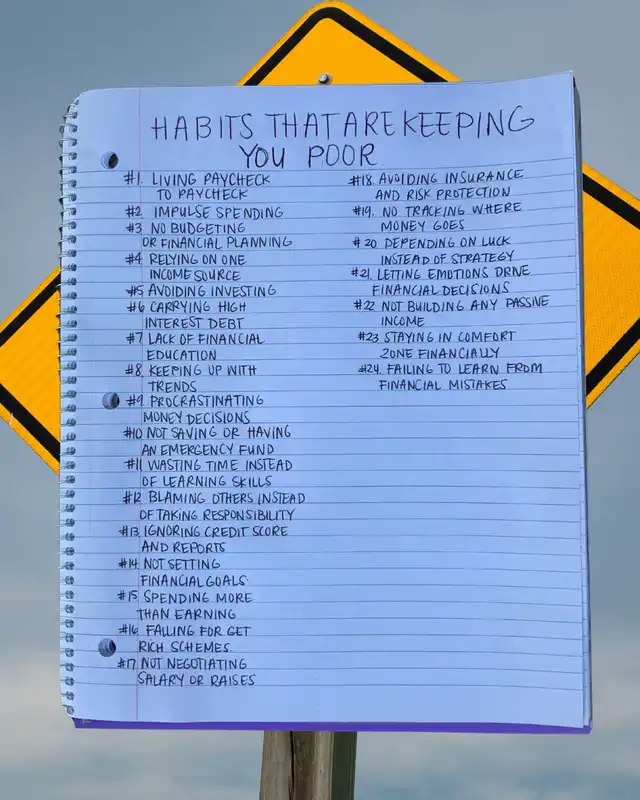 HABITS THAT ARE KEEPING
YOU POOR
#1. LIVING PAYCHECK
TO PAYCHECK
#2 IMPULSE SPENDING
#3 NO BUDGETING
OR FINANCIAL PLANNING
#4 RELYING ON ONE
INCOME SOURCE
#5 AVOIDING INVESTING
#6 CARRYING HIGH
INTEREST DEBT
#7 LACK OF FINANCIAL
EDUCATION
#8. KEEPING UP WITH
TRENDS
#9. PROCRASTINATING
MONEY DECISIONS
#10 NOT SAVING OR HAVING
AN EMERGENCY FUND
#11 WASTING TIME INSTEAD
OF LEARNING SKILLS
#12 BLAMING OTHERS INSTEAD
OF TAKING RESPONSIBILITY
#13 IGNORING CREDIT SCORE
AND REPORTS
#14 NOT SETTING
FINANCIAL GOALS
#15 SPENDING MORE
THAN EARNING
#16 FALLING FOR GET
RICH SCHEMES.
#17 NOT NEGOTIATING
SALARY OR RAISES
#18. AVOIDING INSURANCE
AND RISK PROTECTION
#19. NO TRACKING WHERE
MONEY GOES
#20 DEPENDING ON LUCK
INSTEAD OF STRATEGY
#21. LETTING EMOTIONS DRIVE
FINANCIAL DECISIONS
#22 NOT BUILDING ANY PASSIVE
INCOME
#23 STAYING IN COMFORT
ZONE FINANCIALLY
#24. FAILING TO LEARN FROM
FINANCIAL MISTAKES